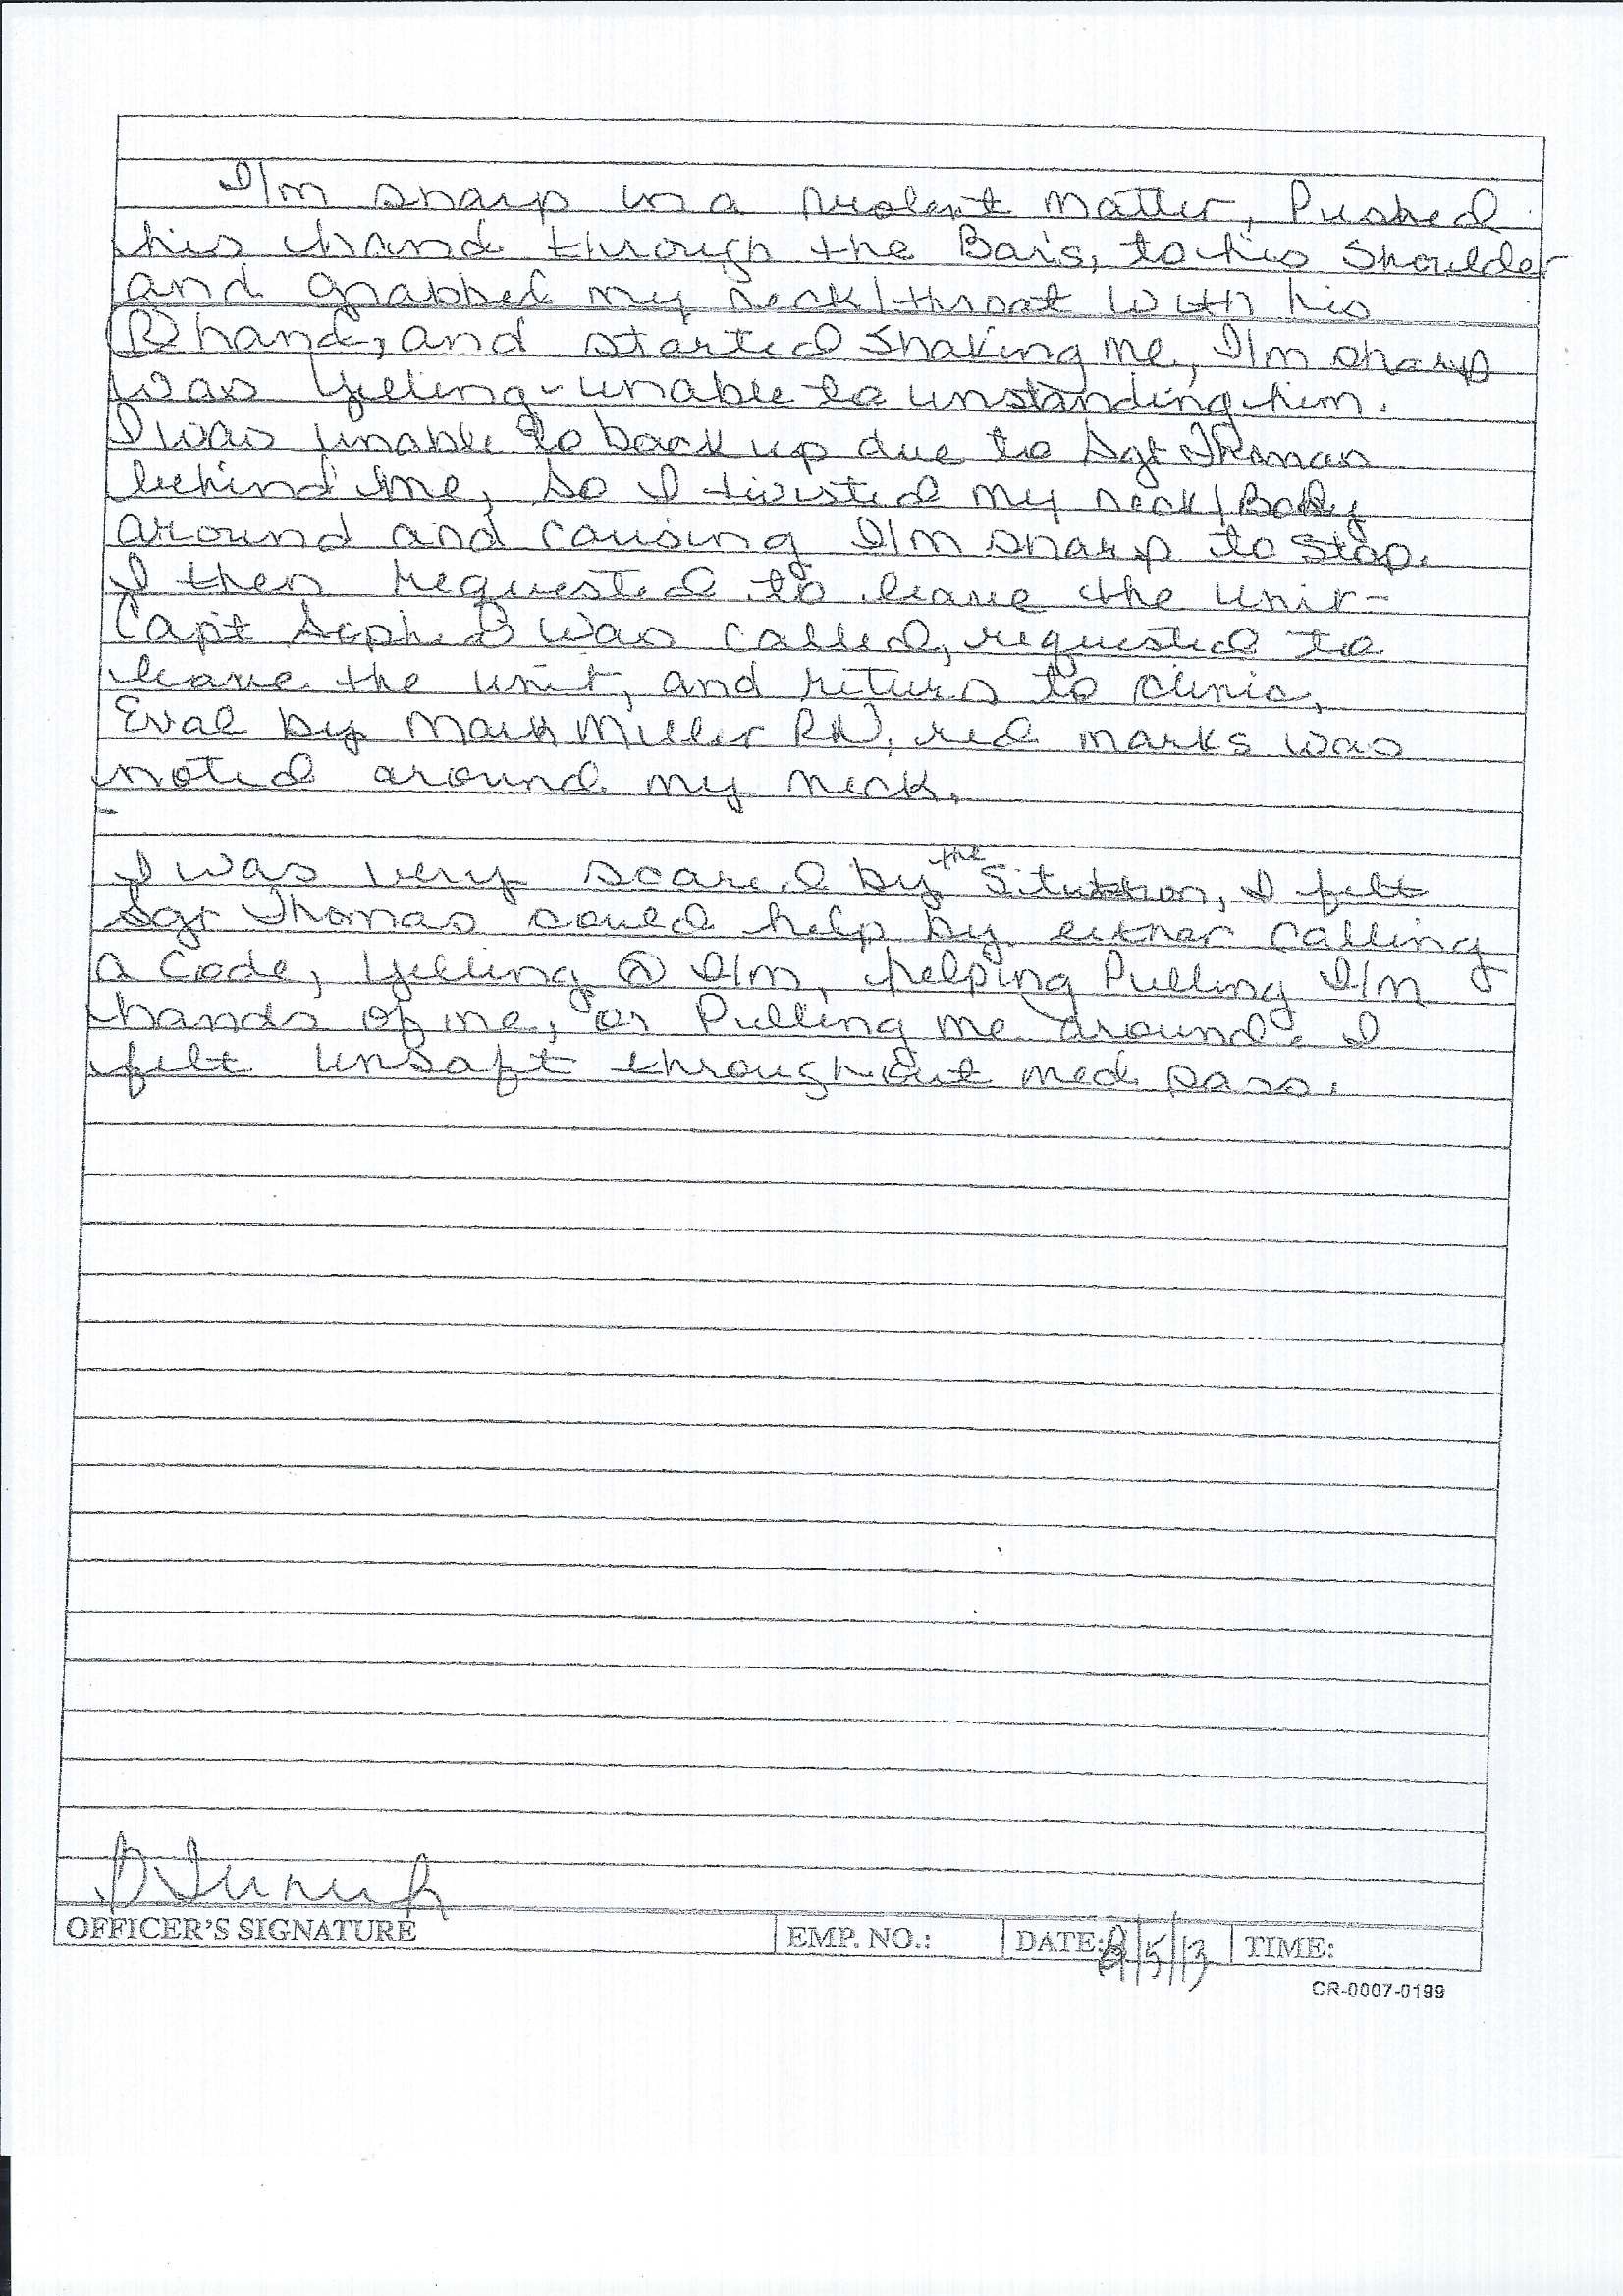 I/m sharp in a violent matter, Pushed
his hand through the Bars, to his Shoulder
and grabbed my neck/throat with his
(R) hand, and started shaking me, I/m sharp
was yelling - unable to unstanding him.
I was unable to back up due to Sgt Thomas
behind me, so I twisted my neck/Body
around and causing I/m sharp to stop.
I then requested to leave the unit-
Capt was called, requested to
leave the unit, and return to clinic,
Eval by Mark Miller RN, red marks was
noted around my neck.
I was very scared by the Situation, I felt
Sgt Thomas could help by either calling
a Code, yelling @ I/m, helping Pulling I/m
hands of me, or Pulling me around. I
felt unsaft throughout med pass.
OFFICER'S SIGNATURE EMP. NO.: DATE: /5/13 TIME:
CR-0007-0199